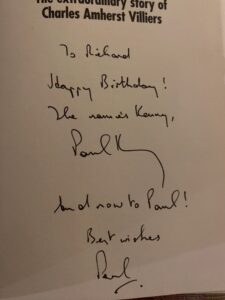 The extraordinary story of
Charles Amherst Villiers
To Richard
Happy Birthday!
The name is Kenny,
Paul K
And now to Paul!
Best wishes
Paul.